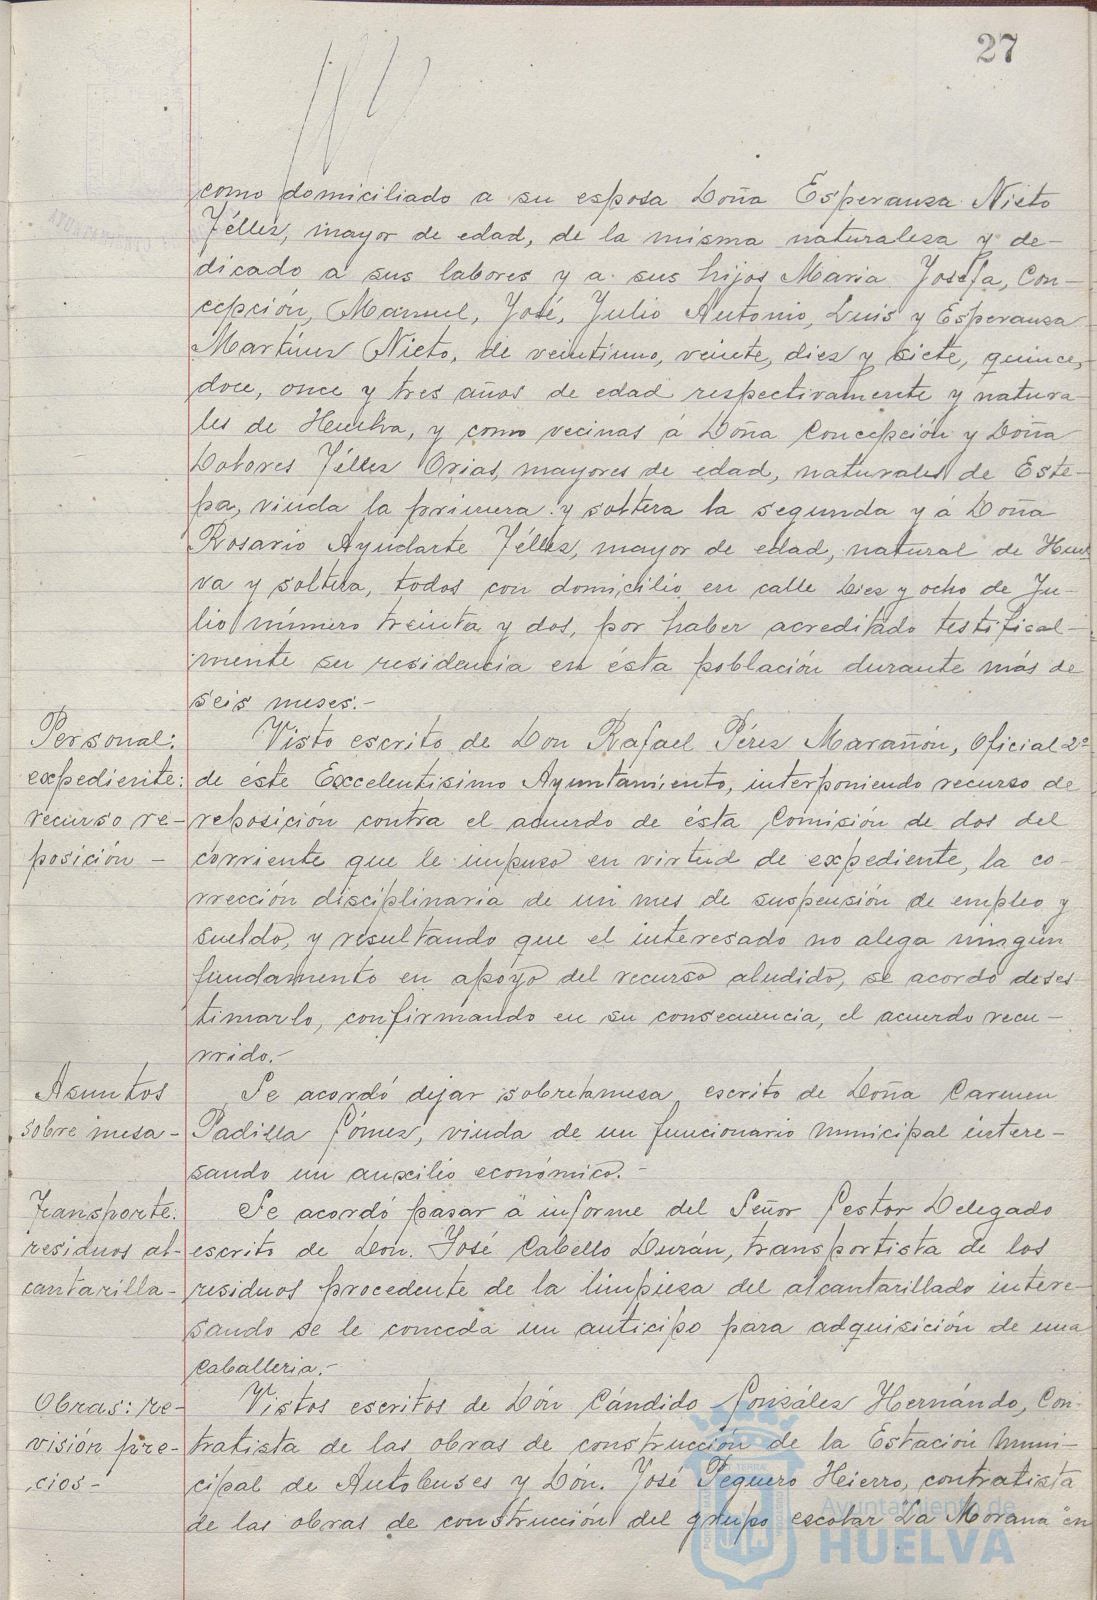 27
como domiciliado a su esposa Doña Esperanza Nieto
Téllez, mayor de edad, de la misma naturaleza y de-
dicado a sus labores y a sus hijos Maria Josefa, Con-
cepción, Manuel, José, Julio Antonio, Luis y Esperanza
Martínez Nieto, de veintiuno, veinte, diez y siete, quince,
doce, once y tres años de edad respectivamente y natura-
les de Huelva, y como vecinas á Doña Concepción y Doña
Dolores Téllez Orias, mayores de edad, naturales de Este-
pa, viuda la primera y soltera la segunda y á Doña
Rosario Ayudarte Téllez, mayor de edad, natural de Huel
va y soltera, todos con domicilio en calle Diez y ocho de Ju-
lio número treinta y dos, por haber acreditado testifical-
mente su residencia en ésta población durante más de
seis meses.-
Personal:
expediente:
recurso re-
posición -
Visto escrito de Don Rafael Pérez Marañón, Oficial 2º
de éste Excelentisimo Ayuntamiento, interponiendo recurso de
reposición contra el acuerdo de ésta Comisión de dos del
corriente que le impuso en virtud de expediente, la co-
rrección disciplinaria de un mes de suspensión de empleo y
sueldo, y resultando que el interesado no alega ningun
fundamento en apoyo del recurso aludido, se acordo deses-
timarlo, confirmando en su consecuencia, el acuerdo recu-
rrido.-
Asuntos
sobre mesa-
Se acordó dejar sobrelamesa escrito de Doña Carmen
Padilla Gómez, viuda de un funcionario municipal intere-
sando un auxilio económico.-
Transporte.
residuos al-
cantarilla-
Se acordó pasar á informe del Señor Gestor Delegado
escrito de Don. José Cabello Durán, transportista de los
residuos procedente de la limpieza del alcantarillado intere-
sando se le conceda un anticipo para adquisición de una
caballeria.-
Obras: re-
visión pre-
cios-
Vistos escritos de Dón Cándido González Hernándo, Con-
tratista de las obras de construcción de la Estación Muni-
cipal de Autobuses y Dón. José Peguero Hierro, contratista
de las obras de construcción del grupo escolar La Morana" en
Ayuntamiento de
HUELVA